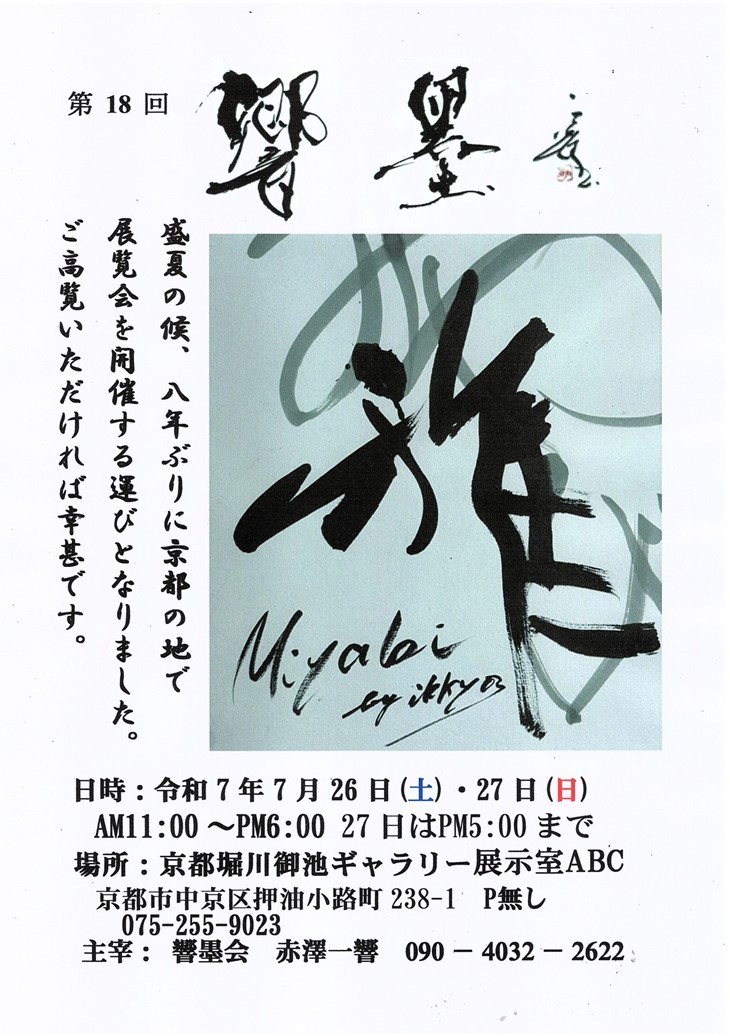 第 18 回
響 墨
盛夏の候、八年ぶりに京都の地で
展覧会を開催する運びとなりました。
ご高覧いただければ幸甚です。
雅
Miyabi
by ikkyo
日時：令和 7 年 7 月 26 日 (土) ・27 日 (日)
AM11:00 ～PM6:00 27 日はPM5:00 まで
場所：京都堀川御池ギャラリー展示室ABC
京都市中京区押油小路町 238-1　P無し
075-255-9023
主宰： 響墨会　赤澤一響　090 － 4032 － 2622